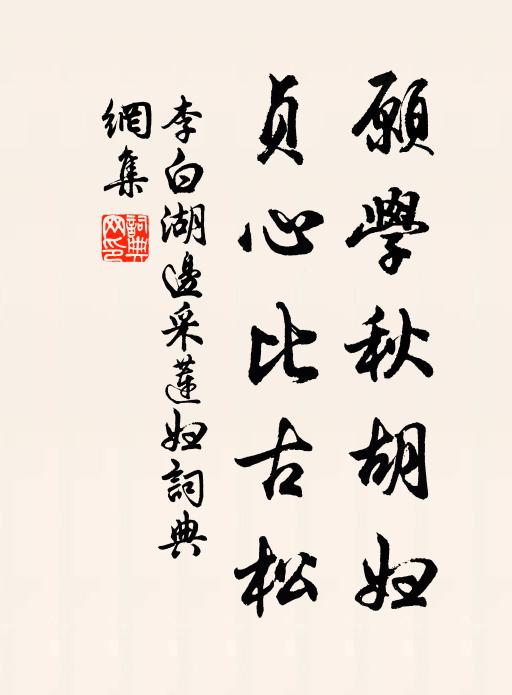 願學秋胡婦
貞心比古松
李白湖邊采蓮婦詞典
網集
詞典網印